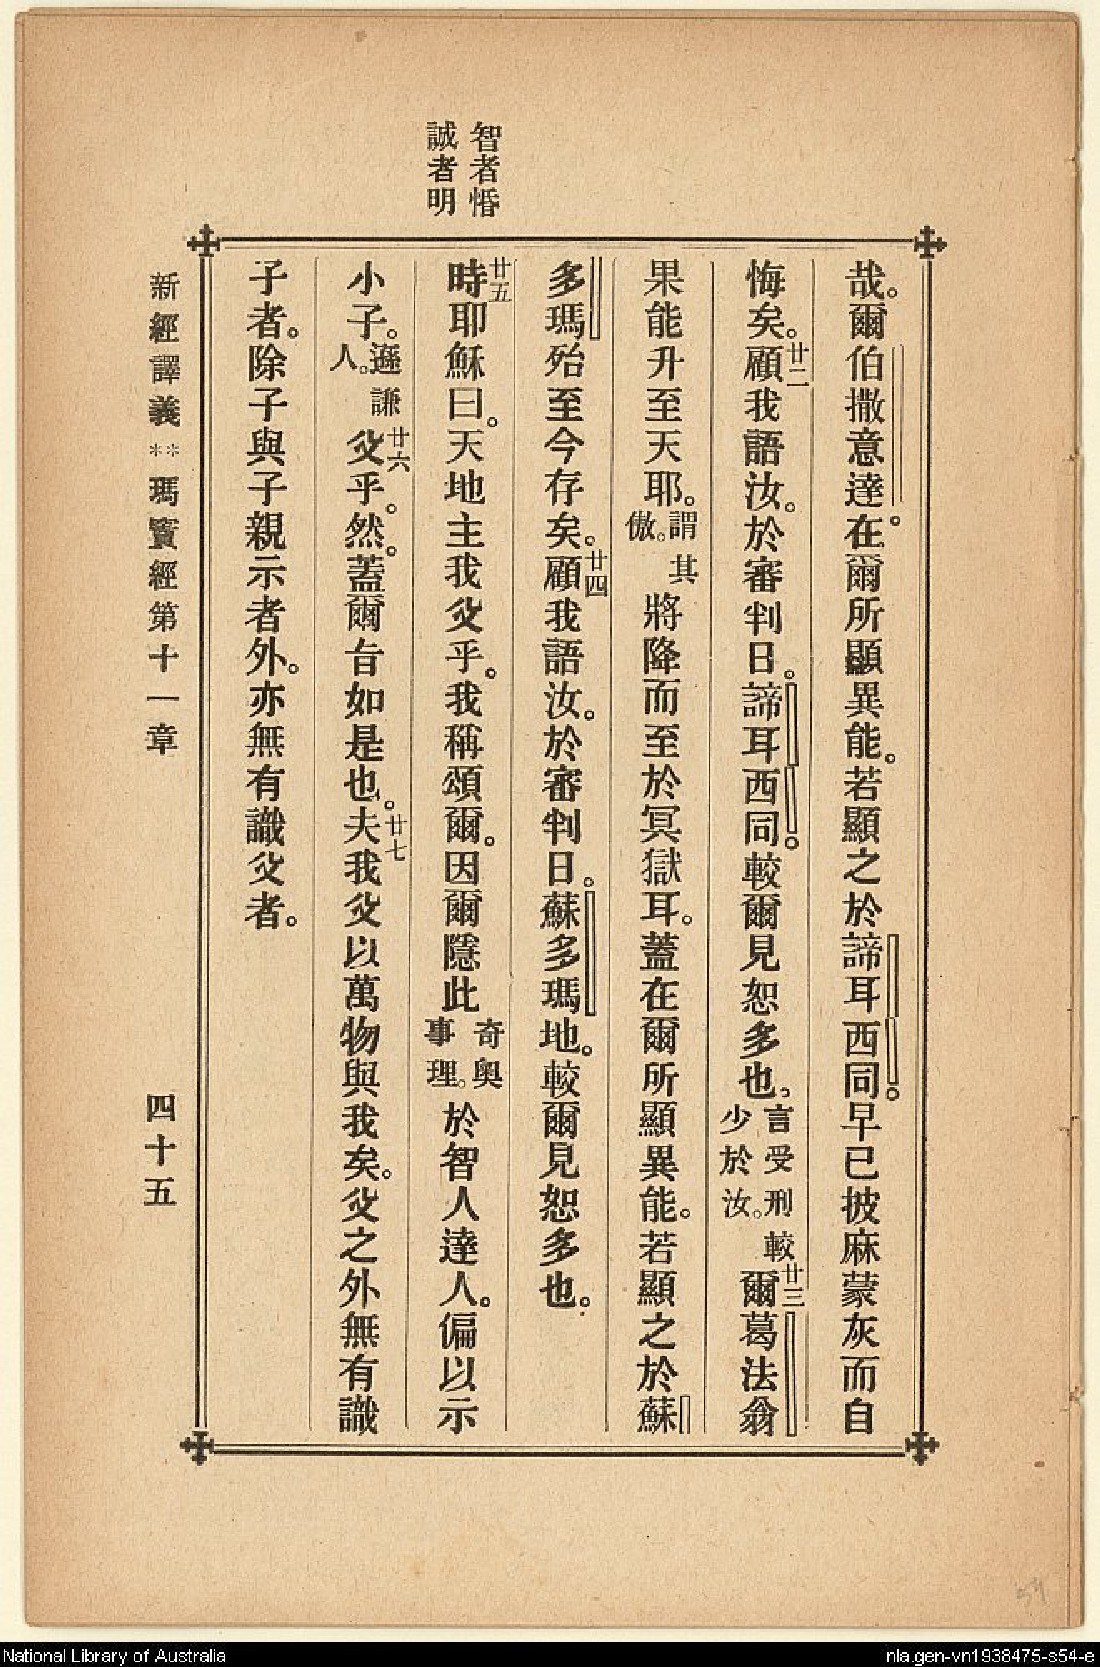 智者惛
誠者明
哉。爾伯撒意達。在爾所顯異能。若顯之於諦耳西同。早已披麻蒙灰而自
悔矣。廿二顧我語汝。於審判日。諦耳西同。較爾見恕多也、言受刑較少於汝。廿三爾葛法翁
果能升至天耶。謂其傲。將降而至於冥獄耳。蓋在爾所顯異能。若顯之於蘇
多瑪殆至今存矣。廿四顧我語汝。於審判日。蘇多瑪地。較爾見恕多也。
廿五時耶穌曰。天地主我父乎。我稱頌爾。因爾隱此奇奧事理。於智人達人。偏以示
小子。遜謙人。廿六父乎。然。蓋爾旨如是也。廿七夫我父以萬物與我矣。父之外無有識
子者。除子與子親示者外。亦無有識父者。
新經譯義**瑪竇經第十一章 四十五
National Library of Australia
nla.gen-vn1938475-s54-e